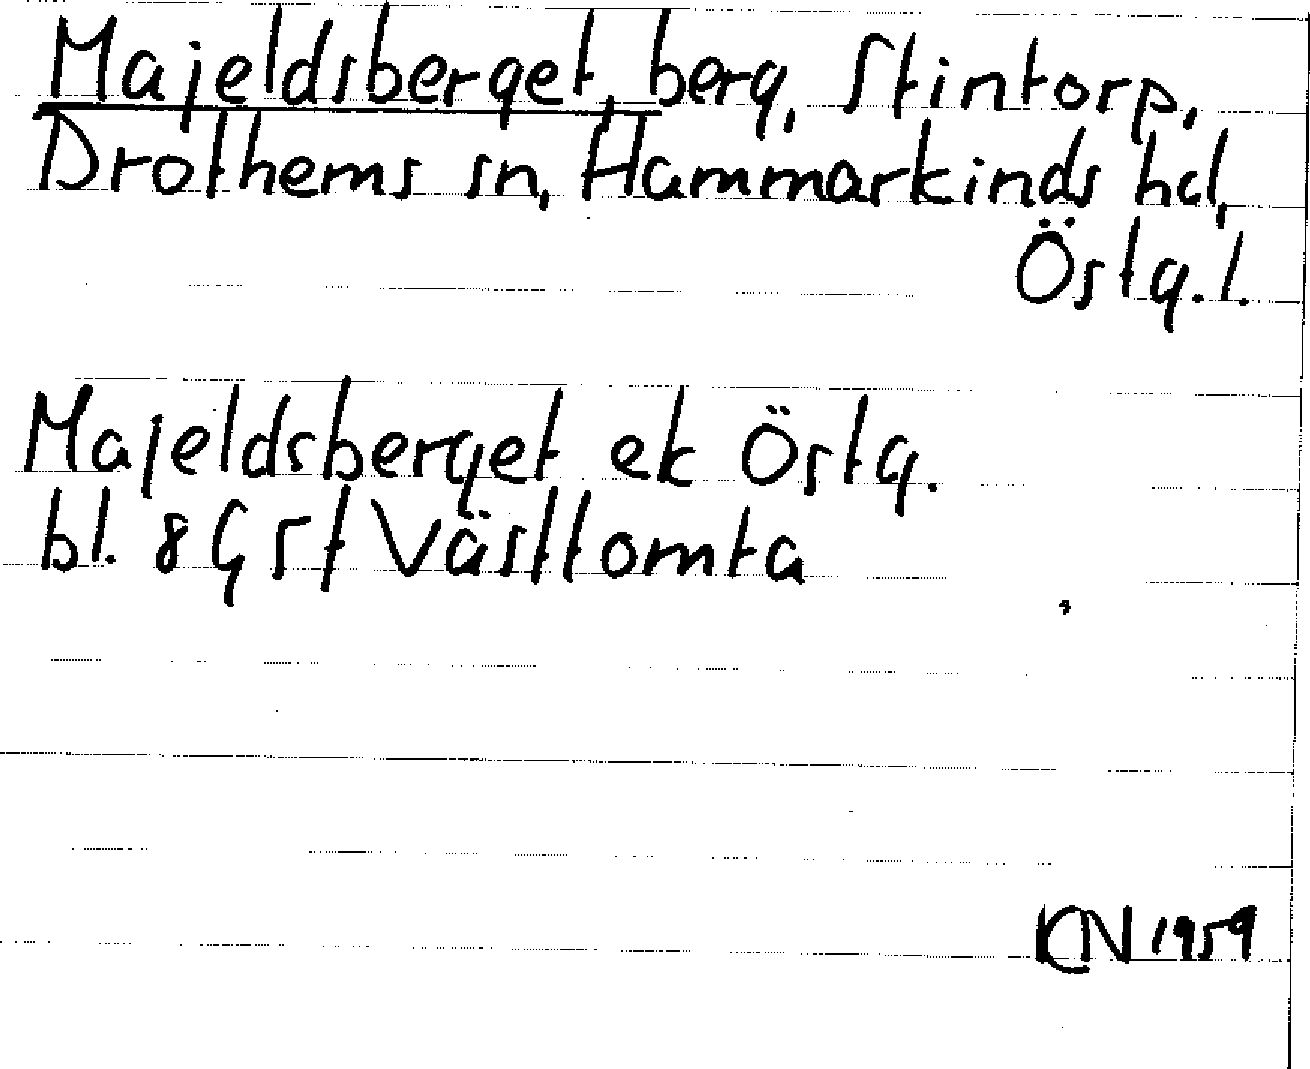 Majeldsberget, berg, Stintorp,
Drothems sn, Hammarkinds hd,
Östg. l.
Majeldsberget ek Östg.
bl. 8 G 5 f Västtomta
KN 1959